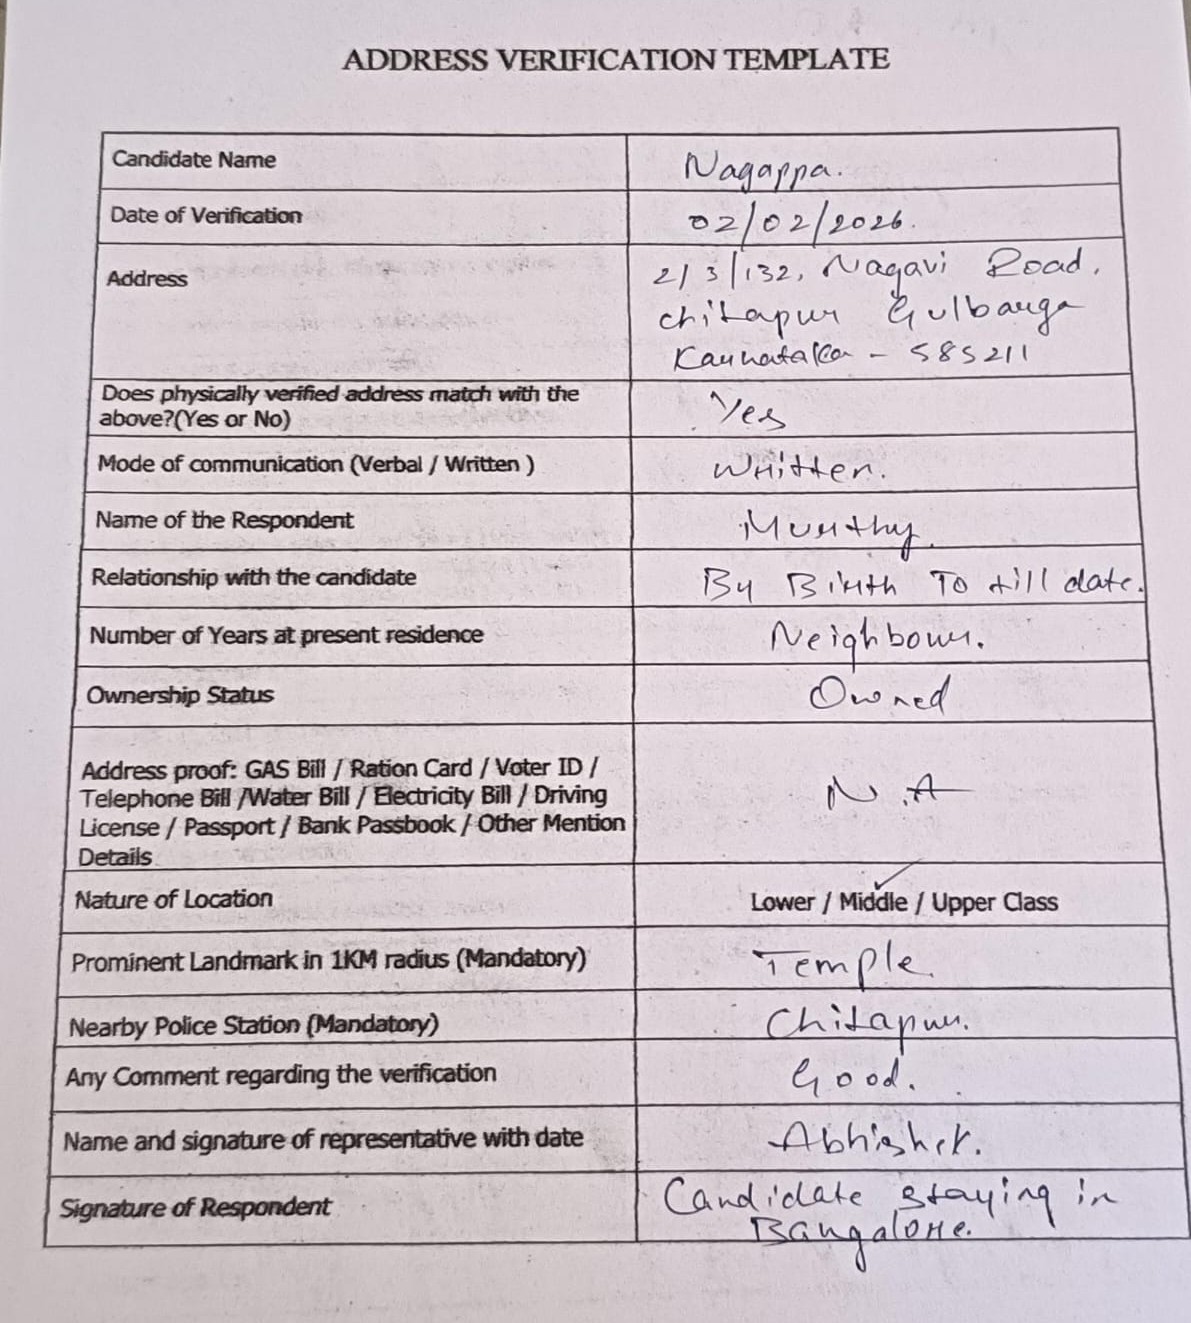 ADDRESS VERIFICATION TEMPLATE
Candidate Name
Nagappa.
Date of Verification
02/02/2026.
Address
2/3/132, Nagavi Road.
Chitapur Gulbarga
Karnataka - 585211
Does physically verified address match with the
above?(Yes or No)
Yes
Mode of communication (Verbal / Written )
Written.
Name of the Respondent
Murthy.
Relationship with the candidate
By Birth To till date.
Number of Years at present residence
Neighbour.
Ownership Status
Owned
Address proof: GAS Bill / Ration Card / Voter ID /
Telephone Bill /Water Bill / Electricity Bill / Driving
License / Passport / Bank Passbook / Other Mention
Details
N.A
Nature of Location
Lower / Middle / Upper Class
Prominent Landmark in 1KM radius (Mandatory)
Temple.
Nearby Police Station (Mandatory)
Chitapur.
Any Comment regarding the verification
Good.
Name and signature of representative with date
Abhishek.
Signature of Respondent
Candidate staying in
Bangalore.